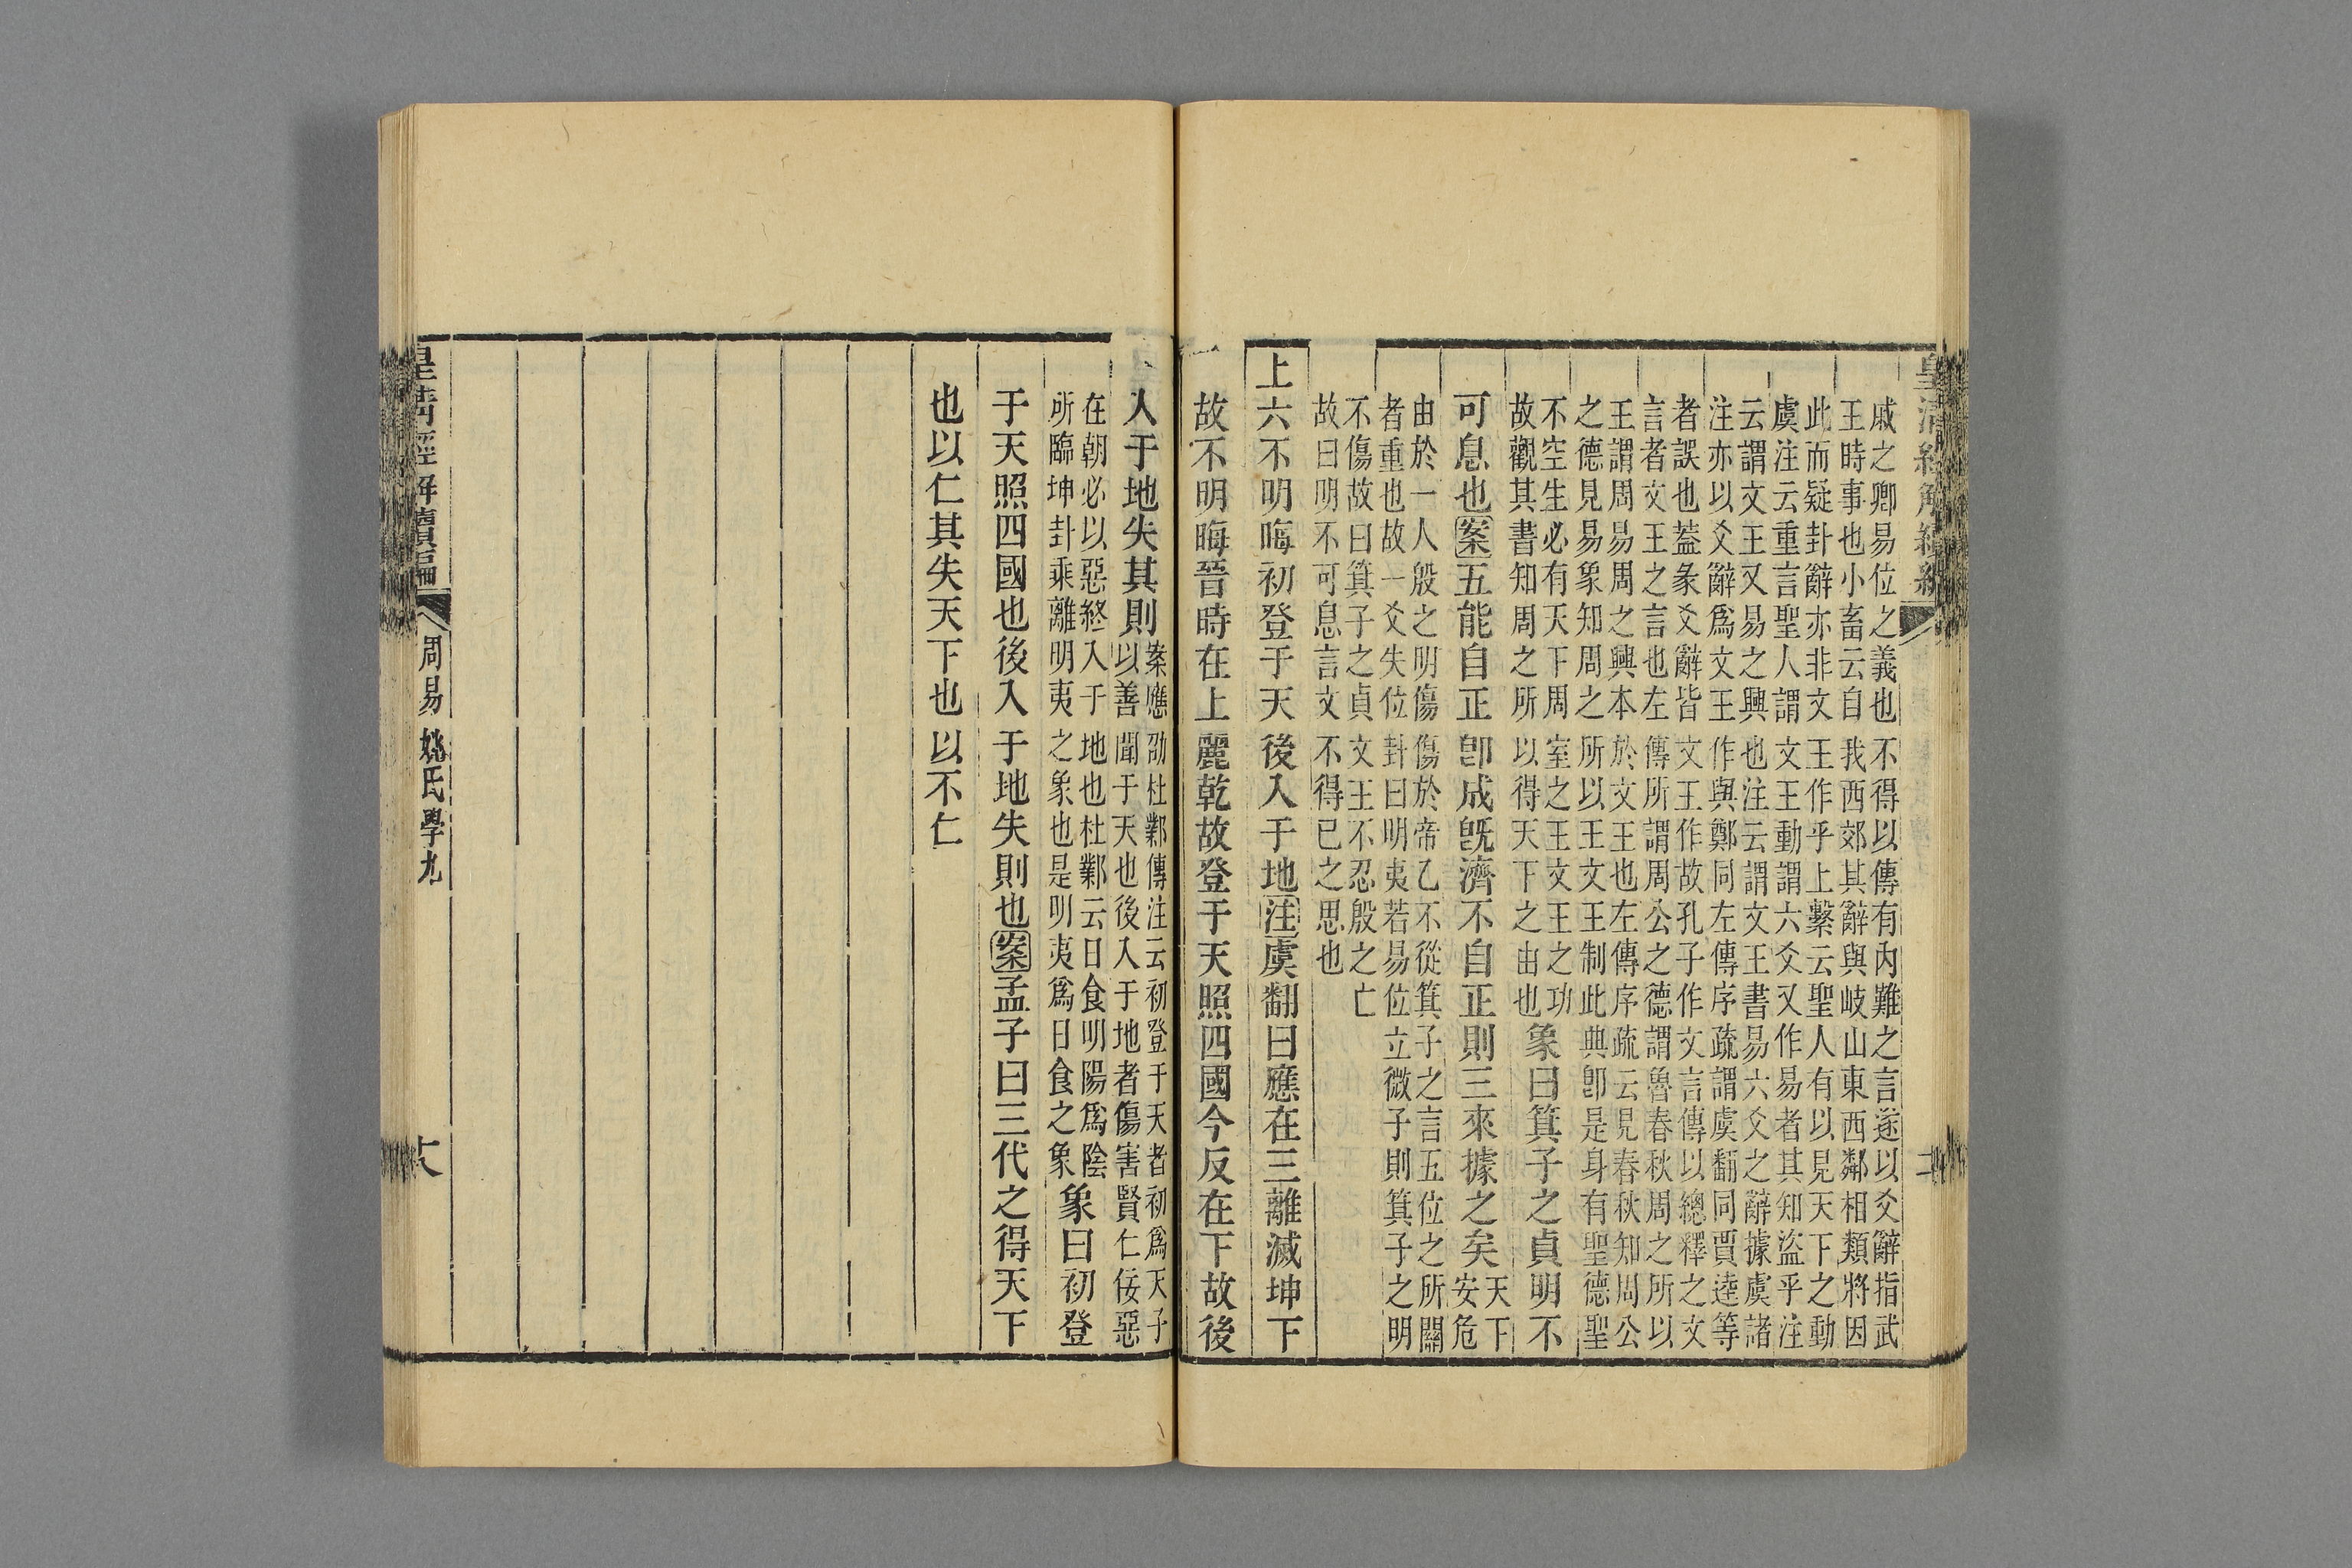 皇清經解續編
戚之卿易位之義也不得以傳有內難之言遂以爻辭指武
王時事也小畜云自我西郊其辭與岐山東西鄰相類將因
此而疑卦辭亦非文王作乎上繫云聖人有以見天下之動
虞注云重言聖人謂文王動謂六爻又作易者其知盜乎注
云謂文王又易之興也注云謂文王書易六爻之辭據虞諸
注亦以爻辭爲文王作與鄭同左傳序疏謂虞翻同賈逵等
者誤也蓋彖爻辭皆文王作故孔子作文言傳以總釋之文
言者文王之言也左傳所謂周公之德謂魯春秋周之所以
王謂周易周之興本於文王也左傳序疏云見春秋知周公
之德見易象知周之所以王文王制此典卽是身有聖德聖
不空生必有天下周室之王文王之功
故觀其書知周之所以得天下之由也
象曰箕子之貞明不
可息也案五能自正卽成旣濟不自正則三來據之矣
天下
安危
由於一人殷之明傷傷於帝乙不從箕子之言五位之所關
者重也故一爻失位卦曰明夷若易位立微子則箕子之明
不傷故曰箕子之貞文王不忍殷之亡
故曰明不可息言文不得已之思也
上六不明晦初登于天後入于地注虞翻曰應在三離滅坤下
故不明晦晉時在上麗乾故登于天照四國今反在下故後
入于地失其則
案應劭杜鄴傳注云初登于天者初爲天子
以善聞于天也後入于地者傷害賢仁佞惡
在朝必以惡終入于地也杜鄴云日食明陽爲陰
所臨坤卦乘離明夷之象也是明夷爲日食之象
象曰初登
于天照四國也後入于地失則也案孟子曰三代之得天下
也以仁其失天下也以不仁
皇清經解續編
周易姚氏學九